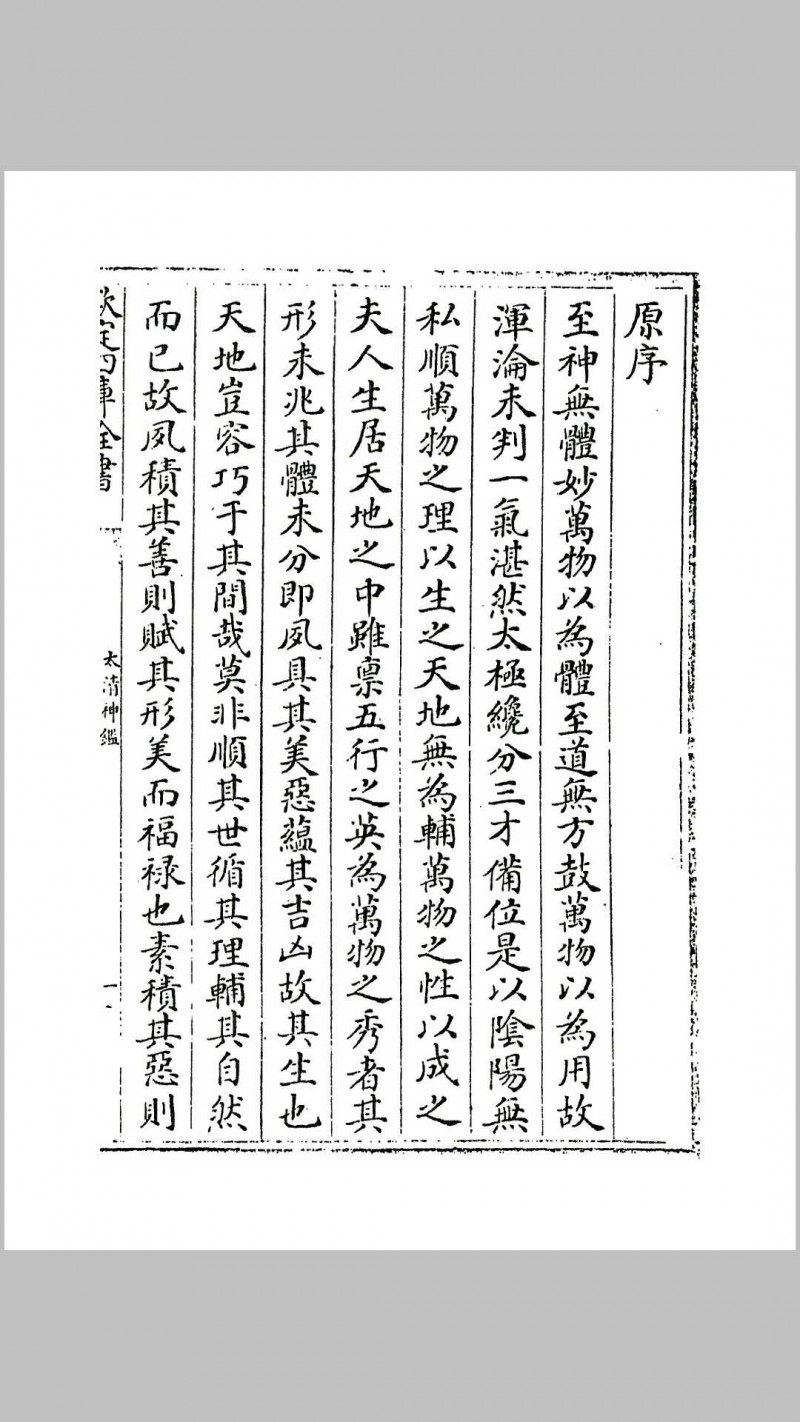 原序
至神無體妙萬物以為體至道無方鼓萬物以為用故
渾淪未判一氣湛然太極纔分三才備位是以陰陽無
私順萬物之理以生之天地無為輔萬物之性以成之
夫人生居天地之中雖稟五行之英為萬物之秀者其
形未兆其體未分即夙具其美惡蘊其吉凶故其生也
天地豈容巧于其間哉莫非順其世循其理輔其自然
而已故夙積其善則賦其形美而福禄也素積其惡則
欽定四庫全書
太清神鑑
一